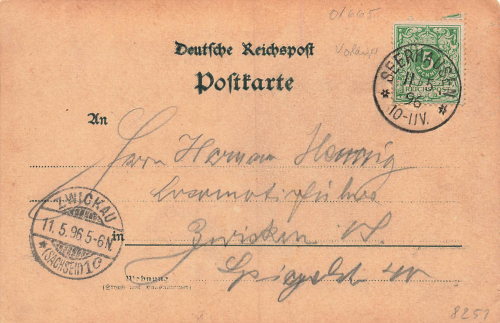 01665
Deutsche Reichspost
Postkarte
5
REICHSPOST
SEERHAUSEN
11/5
96
10-11V.
An
Herrn Herman Hennig
Locomotivführer
Zwickau i/S.
in
ZWICKAU
11.5.96 5-6N.
(SACHSEN) 1c
Wohnung
(Straße und Hausnummer)
8251